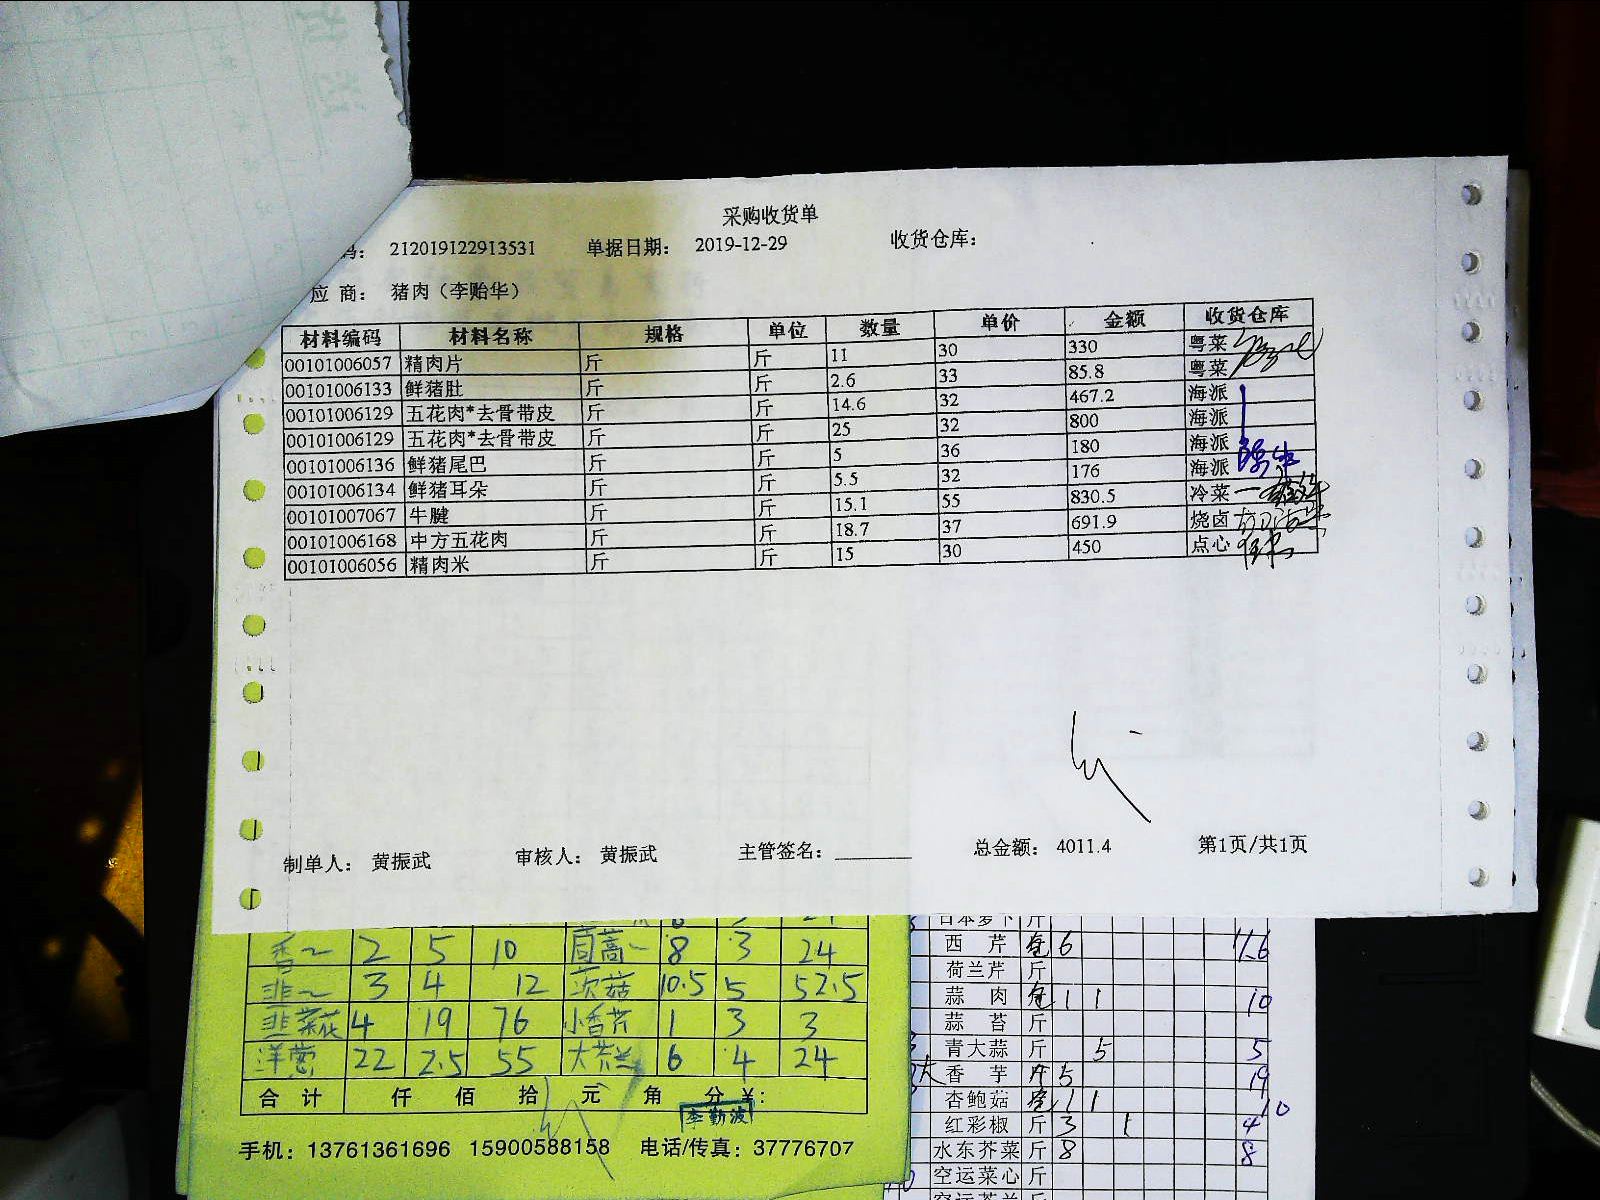 采购收货单
码： 212019122913531 单据日期： 2019-12-29 收货仓库：
应 商： 猪肉（李贻华）
材料编码 材料名称 规格 单位 数量 单价 金额 收货仓库
00101006057 精肉片 斤 斤 11 30 330 粤菜
00101006133 鲜猪肚 斤 斤 2.6 33 85.8 粤菜
00101006129 五花肉*去骨带皮 斤 斤 14.6 32 467.2 海派
00101006129 五花肉*去骨带皮 斤 斤 25 32 800 海派
00101006136 鲜猪尾巴 斤 斤 5 36 180 海派
00101006134 鲜猪耳朵 斤 斤 5.5 32 176 海派
00101007067 牛腱 斤 斤 15.1 55 830.5 冷菜
00101006168 中方五花肉 斤 斤 18.7 37 691.9 烧卤
00101006056 精肉米 斤 斤 15 30 450 点心
制单人： 黄振武 审核人： 黄振武 主管签名： 总金额： 4011.4 第1页/共1页
香 2 5 10 茼蒿 8 3 24
韭 3 4 12 茨菇 10.5 5 52.5
韭菜花 4 19 76 小香芹 1 3 3
洋葱 22 2.5 55 大芥兰 6 4 24
合 计 仟 佰 拾 元 角 分 ¥:
李勤波
手机：13761361696 15900588158 电话/传真：37776707
日本萝卜 斤
西 芹 6
荷兰芹 斤
蒜 肉 1 1 10
蒜 苔 斤
青大蒜 斤 5 5
大 香 芋 斤 5 19
杏鲍菇 1 1 10
红彩椒 斤 3 1 4
水东芥菜 斤 8 8
空运菜心 斤
空运芥兰 斤